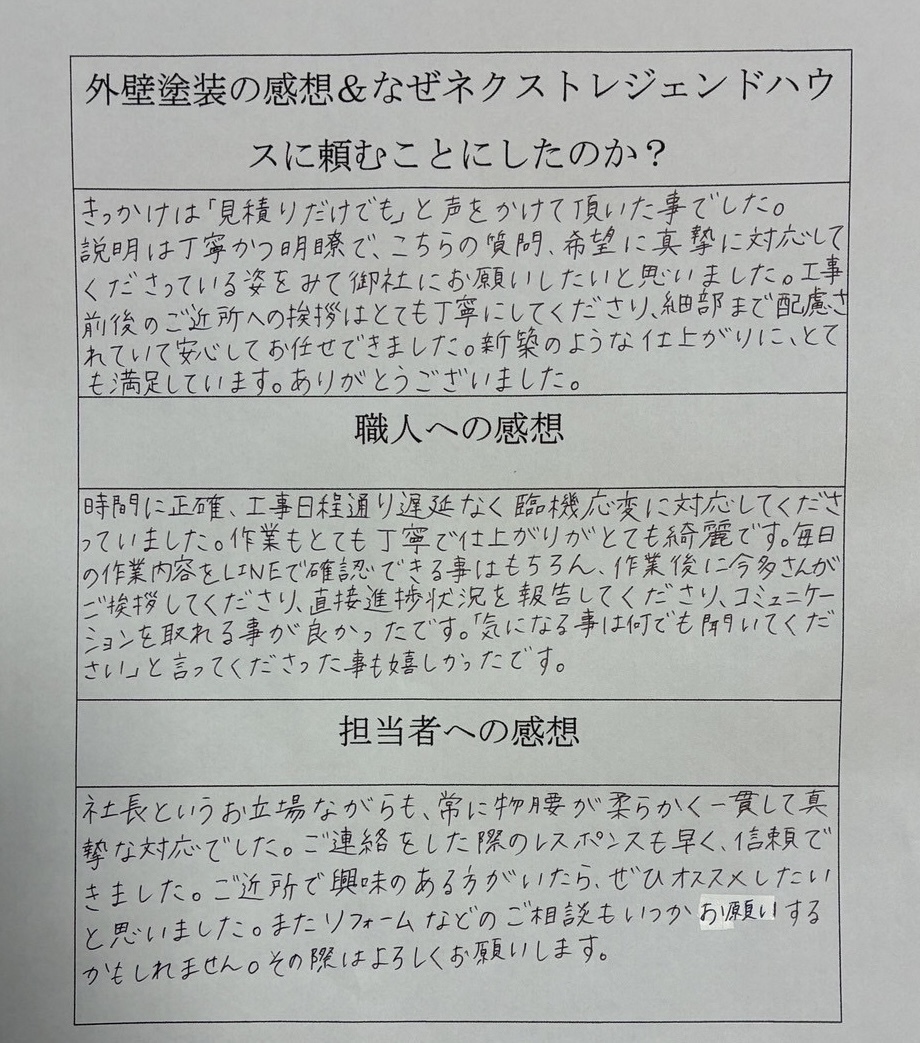 外壁塗装の感想＆なぜネクストレジェンドハウ
スに頼むことにしたのか？
きっかけは「見積りだけでも」と声をかけて頂いた事でした。
説明は丁寧かつ明瞭で、こちらの質問、希望に真摯に対応して
くださっている姿をみて御社にお願いしたいと思いました。工事
前後のご近所への挨拶はとても丁寧にしてくださり、細部まで配慮さ
れていて安心してお任せできました。新築のような仕上がりに、とて
も満足しています。ありがとうございました。
職人への感想
時間に正確、工事日程通り遅延なく臨機応変に対応してくださ
っていました。作業もとても丁寧で仕上がりがとても綺麗です。毎日
の作業内容をLINEで確認できる事はもちろん、作業後に今多さんが
ご挨拶してくださり、直接進捗状況を報告してくださり、コミュニケー
ションを取れる事が良かったです。「気になる事は何でも聞いてくだ
さい」と言ってくださった事も嬉しかったです。
担当者への感想
社長というお立場ながらも、常に物腰が柔らかく一貫して真
摯な対応でした。ご連絡をした際のレスポンスも早く、信頼で
きました。ご近所で興味のある方がいたら、ぜひオススメしたい
と思いました。またリフォームなどのご相談もいつかお願いする
かもしれません。その際はよろしくお願いします。